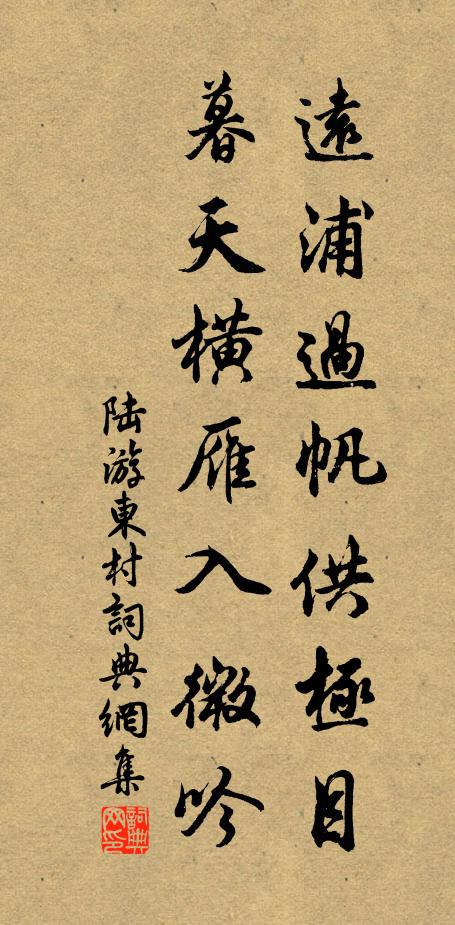 遠浦過帆供極目
暮天橫雁入微吟
陆游東村詞典網集
詞典網印